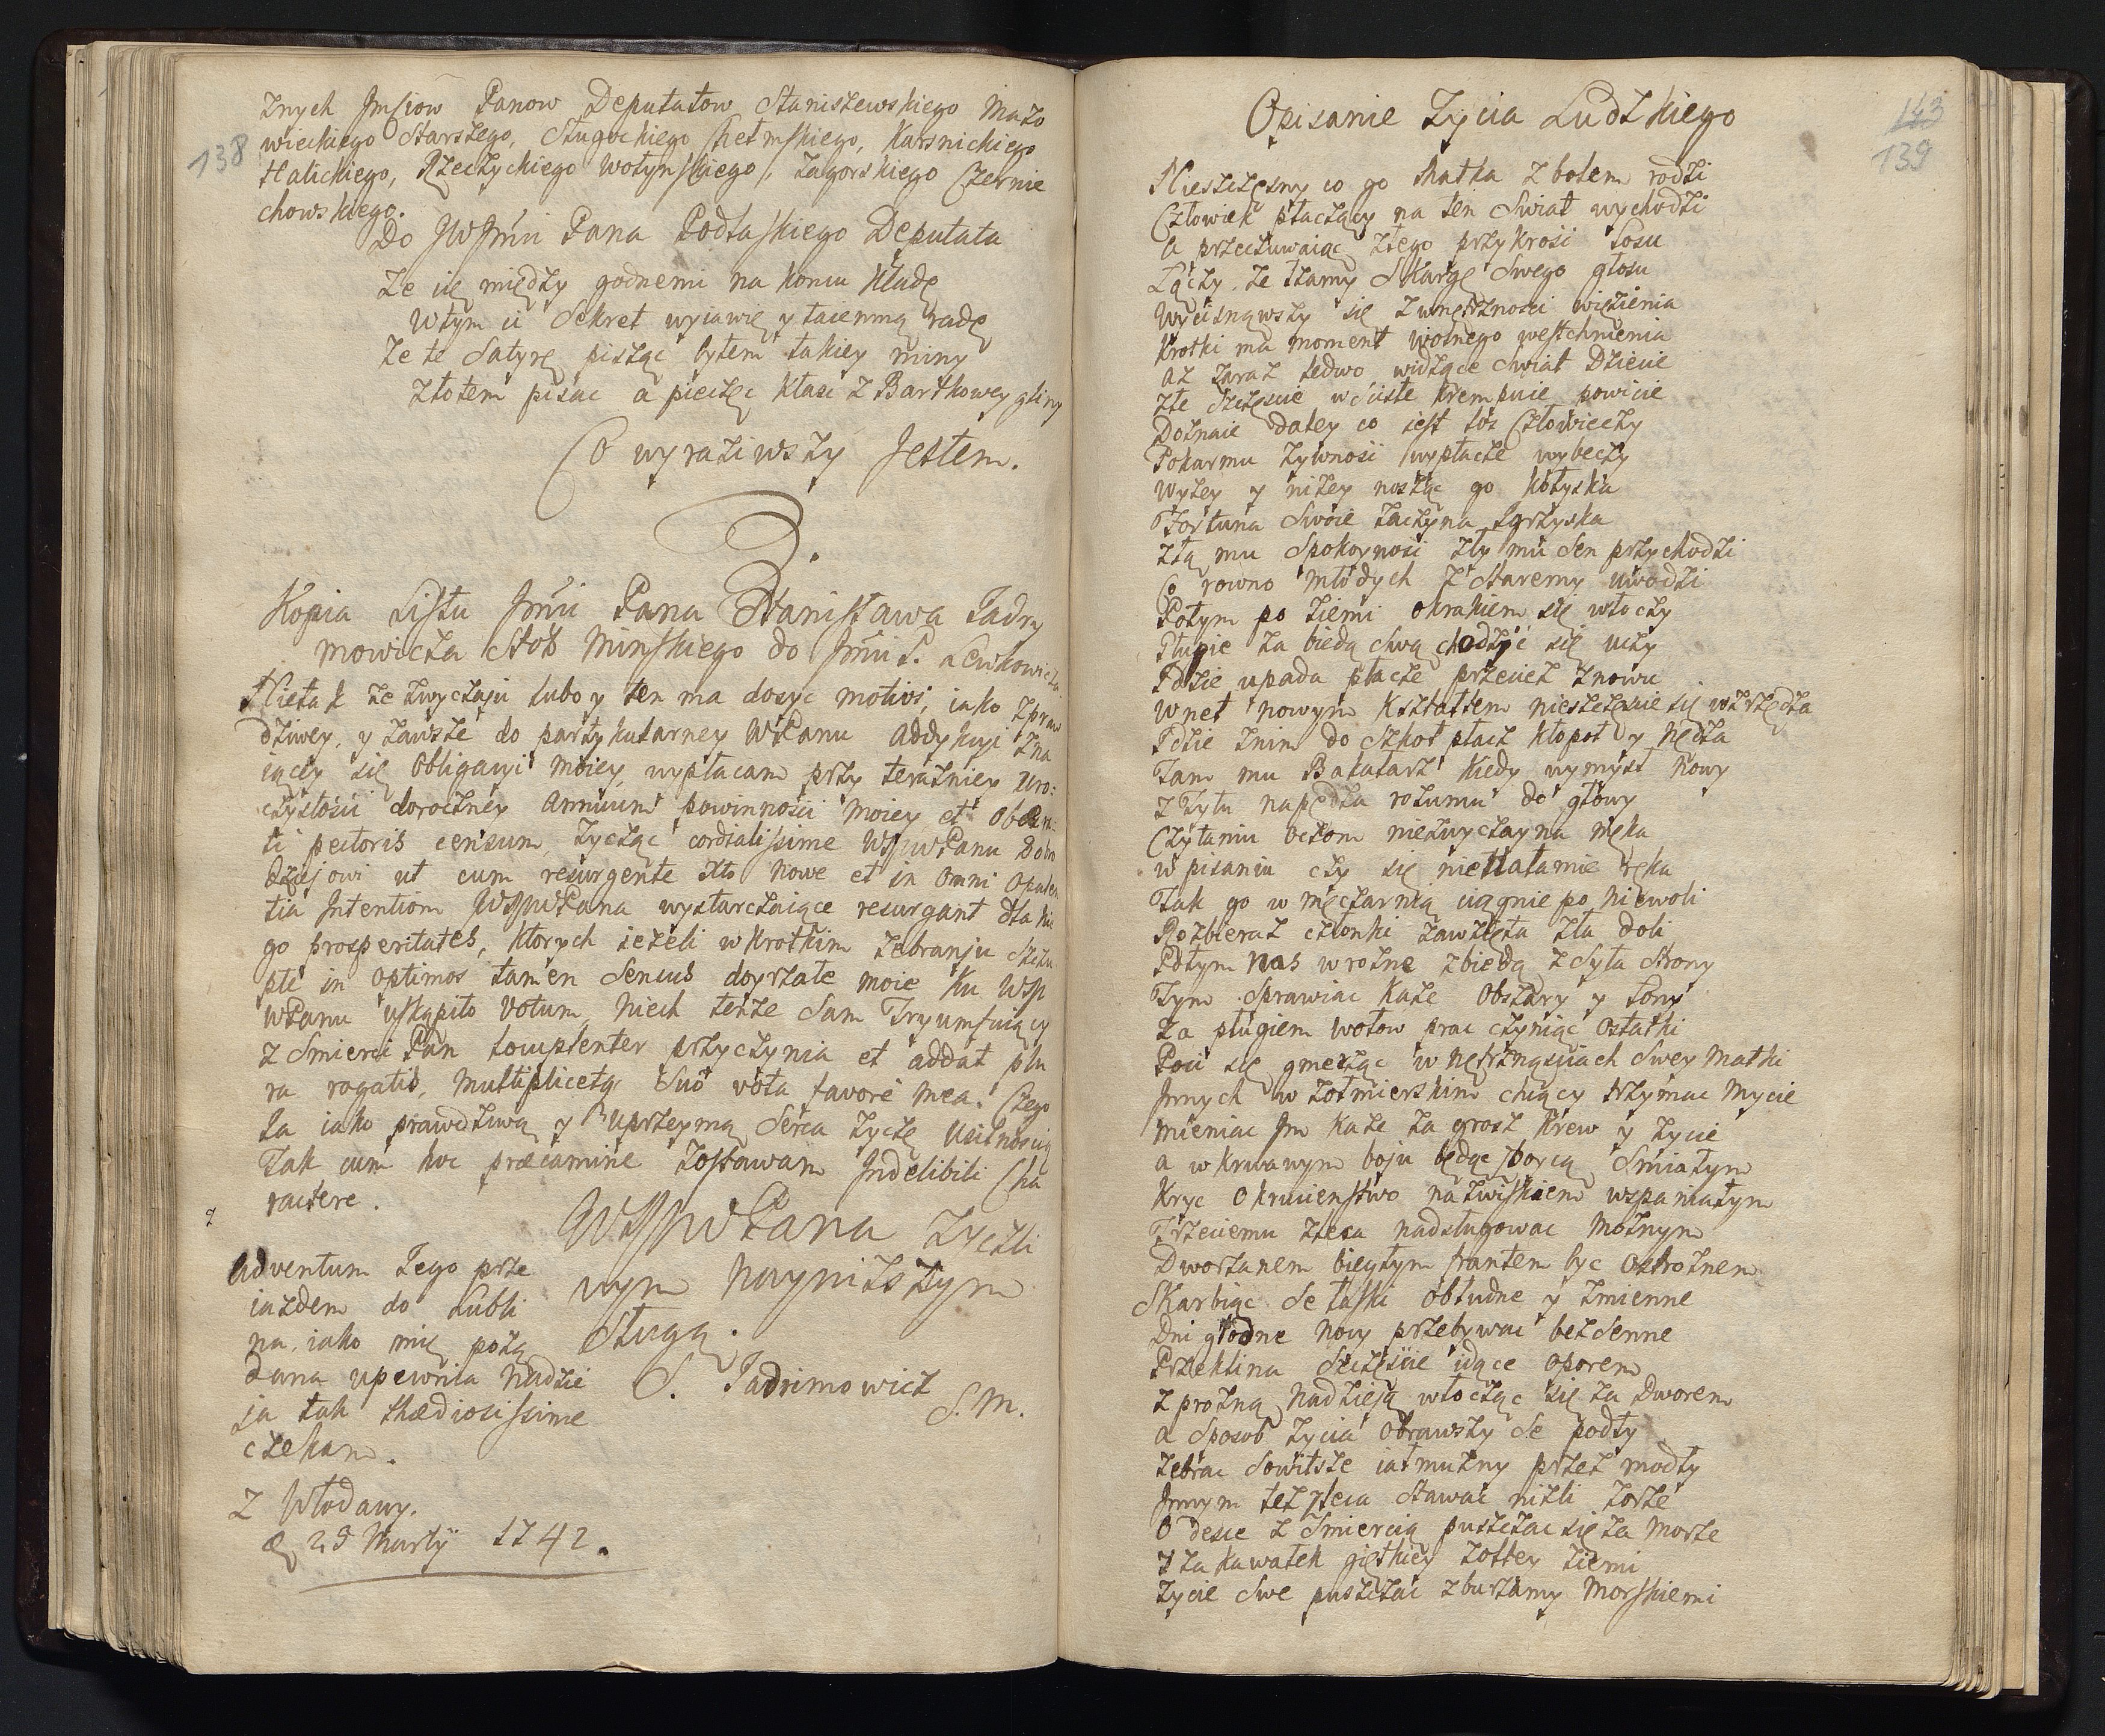 138
Znych Jmciow Panow Deputatow Staniszewskiego Mazo
wieckiego Starszego, Sługockiego Chełmskiego, Karsnickiego
Halickiego, Rzeczyckiego Wołynskiego, Zagorskiego Czernie
chowskiego.
Do JWJmci Pana Podlaskiego Deputata
Ze cię między godnemi na koniu kładę
Wtym ci Sekret wyiawię y taiemną radę
Ze te Satyrę pisząc bytem takiey miny
Złotem pisac a pieczęc kłasc z Bartkowey gliny
Co wyraziwszy Jestem.
Kopia Listu Jmci Pana Stanisława Jadzy
mowicza Stol Minskiego do Jmci P. Lewkowicza
Nietak ze zwyczaju lubo y ten ma dosyc motivi, iako zpraw
dziwey, y zawsze do partykularney WPanu addykcyi zna
iącey się Obligacyi moiey, wypłacam przy teraźniey uro:
czystosci doroczney Annuum powinnosci moiey et
ti pectoris censum, zycząc cordialissime WJmPanu Dobro
dziejowi ut cum resurgente Xto nowe et in omni Opulen
tia Intentiom WJmPana wystarczaiące resurgant dla nie
go prosperitates, ktorych iezeli w krotkim zebranju szczu
ple in optimos tamen Sensus doyrzałe moie ku WJm
WPanu uskąpiło Votum, niech tenze Sam Tryumfuiący
z Smierci Pan przyczynia et addat plu
ra rogatis, multiplicetq suo vota favore mea. Czego
Za iako prawdziwą y uprzeymą Serca zyczę usilnoscią
Tak cum hoc præcamine Zostawam Indelibili Cha
ractere.
WJmPana Zyczli
wym Nayniższym
Sługą.
S. Jadzimowicz
S. M.
Adventum Jego prze
iazdem do Lubli
na, iako mię pożą
dana upewnia nadzie
ja tak tædiosissime
czekam.
Z Włodawy.
29 Martij 1742.
143
139
Opisanie Zycia Ludzkiego
Nieszczęsny co go Matka z bolem rodzi
Człowiek płaczący na ten Swiat wychodzi
A przeczuwaiąc złego przykrosc Losu
Łączy ze łzamy Skargę Swego głosu
Wycisnąwszy się z wnętrznosci więzienia
Krotki ma moment wolnego westchnienia
Az zaraz ledwo widzące Swiat Dziecie
Złe Szczęscie w scisłe krempuie powicie
Doznaie daley co iest los Człowieczy
Pokarmu zywnosc wypłacze wybeczy
Wyzey y nizey nosząc go kołyska
Fortuna Swoie zaczyna Igrzyska
Złą mu Spokoynosc zły mu Sen przychodzi
Co rowno młodych z Staremy uwodzi
Potym po ziemi okrakiem się włoczy
Głupie za biedą swą chodzic się uczy
Jdzie upada płacze przeciez znowu
Wnet nowym kształtem nieszczęscie się wszczędza
Jdzie znim do Szkoł płacz kłopot y Nędza
Tam mu Bakałarz kiedy wymysł nowy
z Tyłu napędza rozumu do głowy
Czytaniu oczom niezwyczayna męka
w pisaniu czy się nie załamie ręka
Tak go w męczarnią ciągnie po niewoli
Rozbieraz członki zawzięta zła doli
Potym nas w rożne z biedą zsyła Strony
Tym Sprawiac kaze Obszary y Łony
Za pługiem wołow prac czyniąc Ostatki
Poci się gmerząc w nętrznosciach Swey Matki
Jnnych w żołnierskim chcący trzymac Mycie
mieniac Jm kaze za grosz krew y życie
a w krwawym boju będąc zborcą Smiałym
Kryc okrucienstwo nazwiskiem wspaniałym
Trzeciemu zleca nadsługowac Możnym
Dworzanem biegłym frantem byc Ostrożnem
Skarbiąc Se łaski obłudne y zmienne
Dni głodne nocy przebywac bezsenne
Przeklina Szczęscie idące oporem
z prozną nadzieją włocząc się za Dworem
a Sposob życia Obrawszy Se podły
Zebrac Sowitsze iałmużny przez modły
Jnnym też zleca Stawac niżli zorze
O desce z Smiercią puszczac się za Morze
Y za kawałek giętkiey żołtey ziemi
zycie Swe puszczac z burzamy Morskiemi